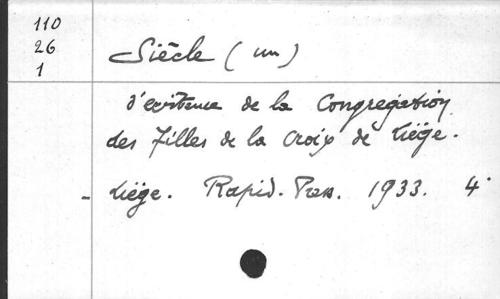 110
26
1
Siècle (un)
d'existence de la Congrégation
des Filles de la Croix de Liége.
- Liége. Rapid. Press. 1933. 4°